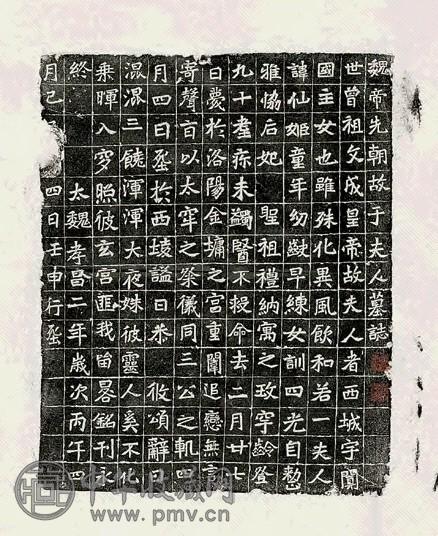 魏帝先朝故于夫人墓誌
世曾祖文成皇帝故夫人者西城宇闐
國主女也雖殊化異風飲和若一夫人
諱仙姬童年幼齔早練女訓四光自整
雅協后妃 聖祖禮納寓之玫宇齡登
九十耋疹未蠲醫不救命去二月廿七
日薨於洛陽金墉之宮重闈追戀無言
寄聲旨以太宰之祭儀同三公之軌四
月四日窆於西墝謚曰恭 攸頌辭曰
混混三饒渾渾大夜姝彼靈人奚不化
乘暉入穸照彼玄宮匪我留晷銘刊永
終 太魏孝昌二年歲次丙午四
月己 四日壬申行窆
中华收藏网
www.pmv.cn